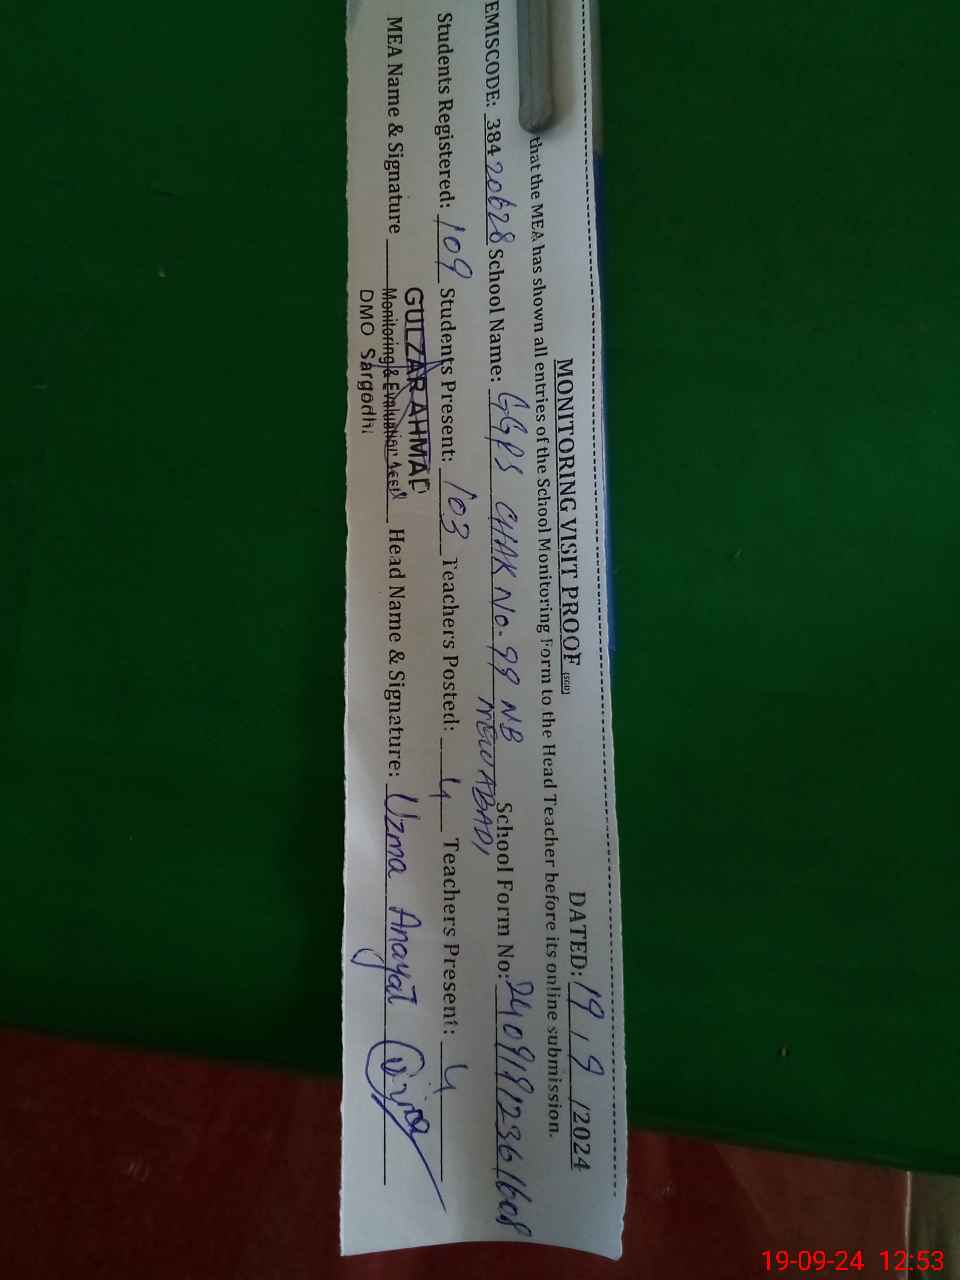 MONITORING VISIT PROOF (SGD) DATED: 19/9/2024
that the MEA has shown all entries of the School Monitoring Form to the Head Teacher before its online submission.
EMISCODE: 38420628 School Name: GGPS CHAK No. 99 NB NEW ABADI School Form No: 24091912361608
Students Registered: 109 Students Present: 103 Teachers Posted: 4 Teachers Present: 4
MEA Name & Signature Head Name & Signature: Uzma Anayat
GULZAR AHMAD
Monitoring & Evaluation Asstt
DMO Sargodh
19-09-24 12:53